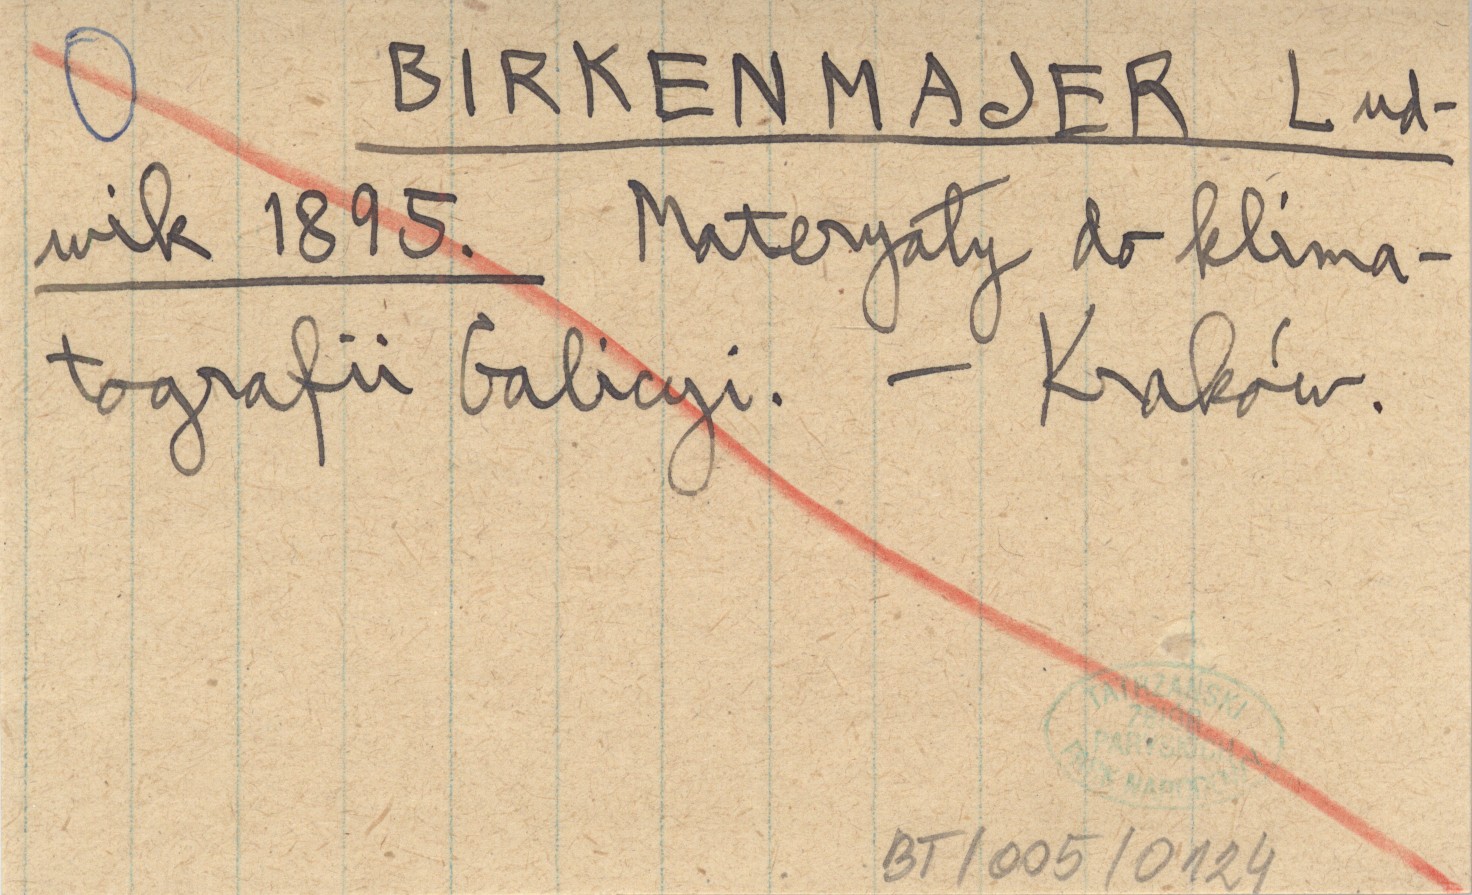 BIRKENMAJER Lud-
wik 1895. Materyały do klima-
tografii Galicyi. — Kraków.
TATRZAŃSKI
PARK NARODOWY
BT/005/0124